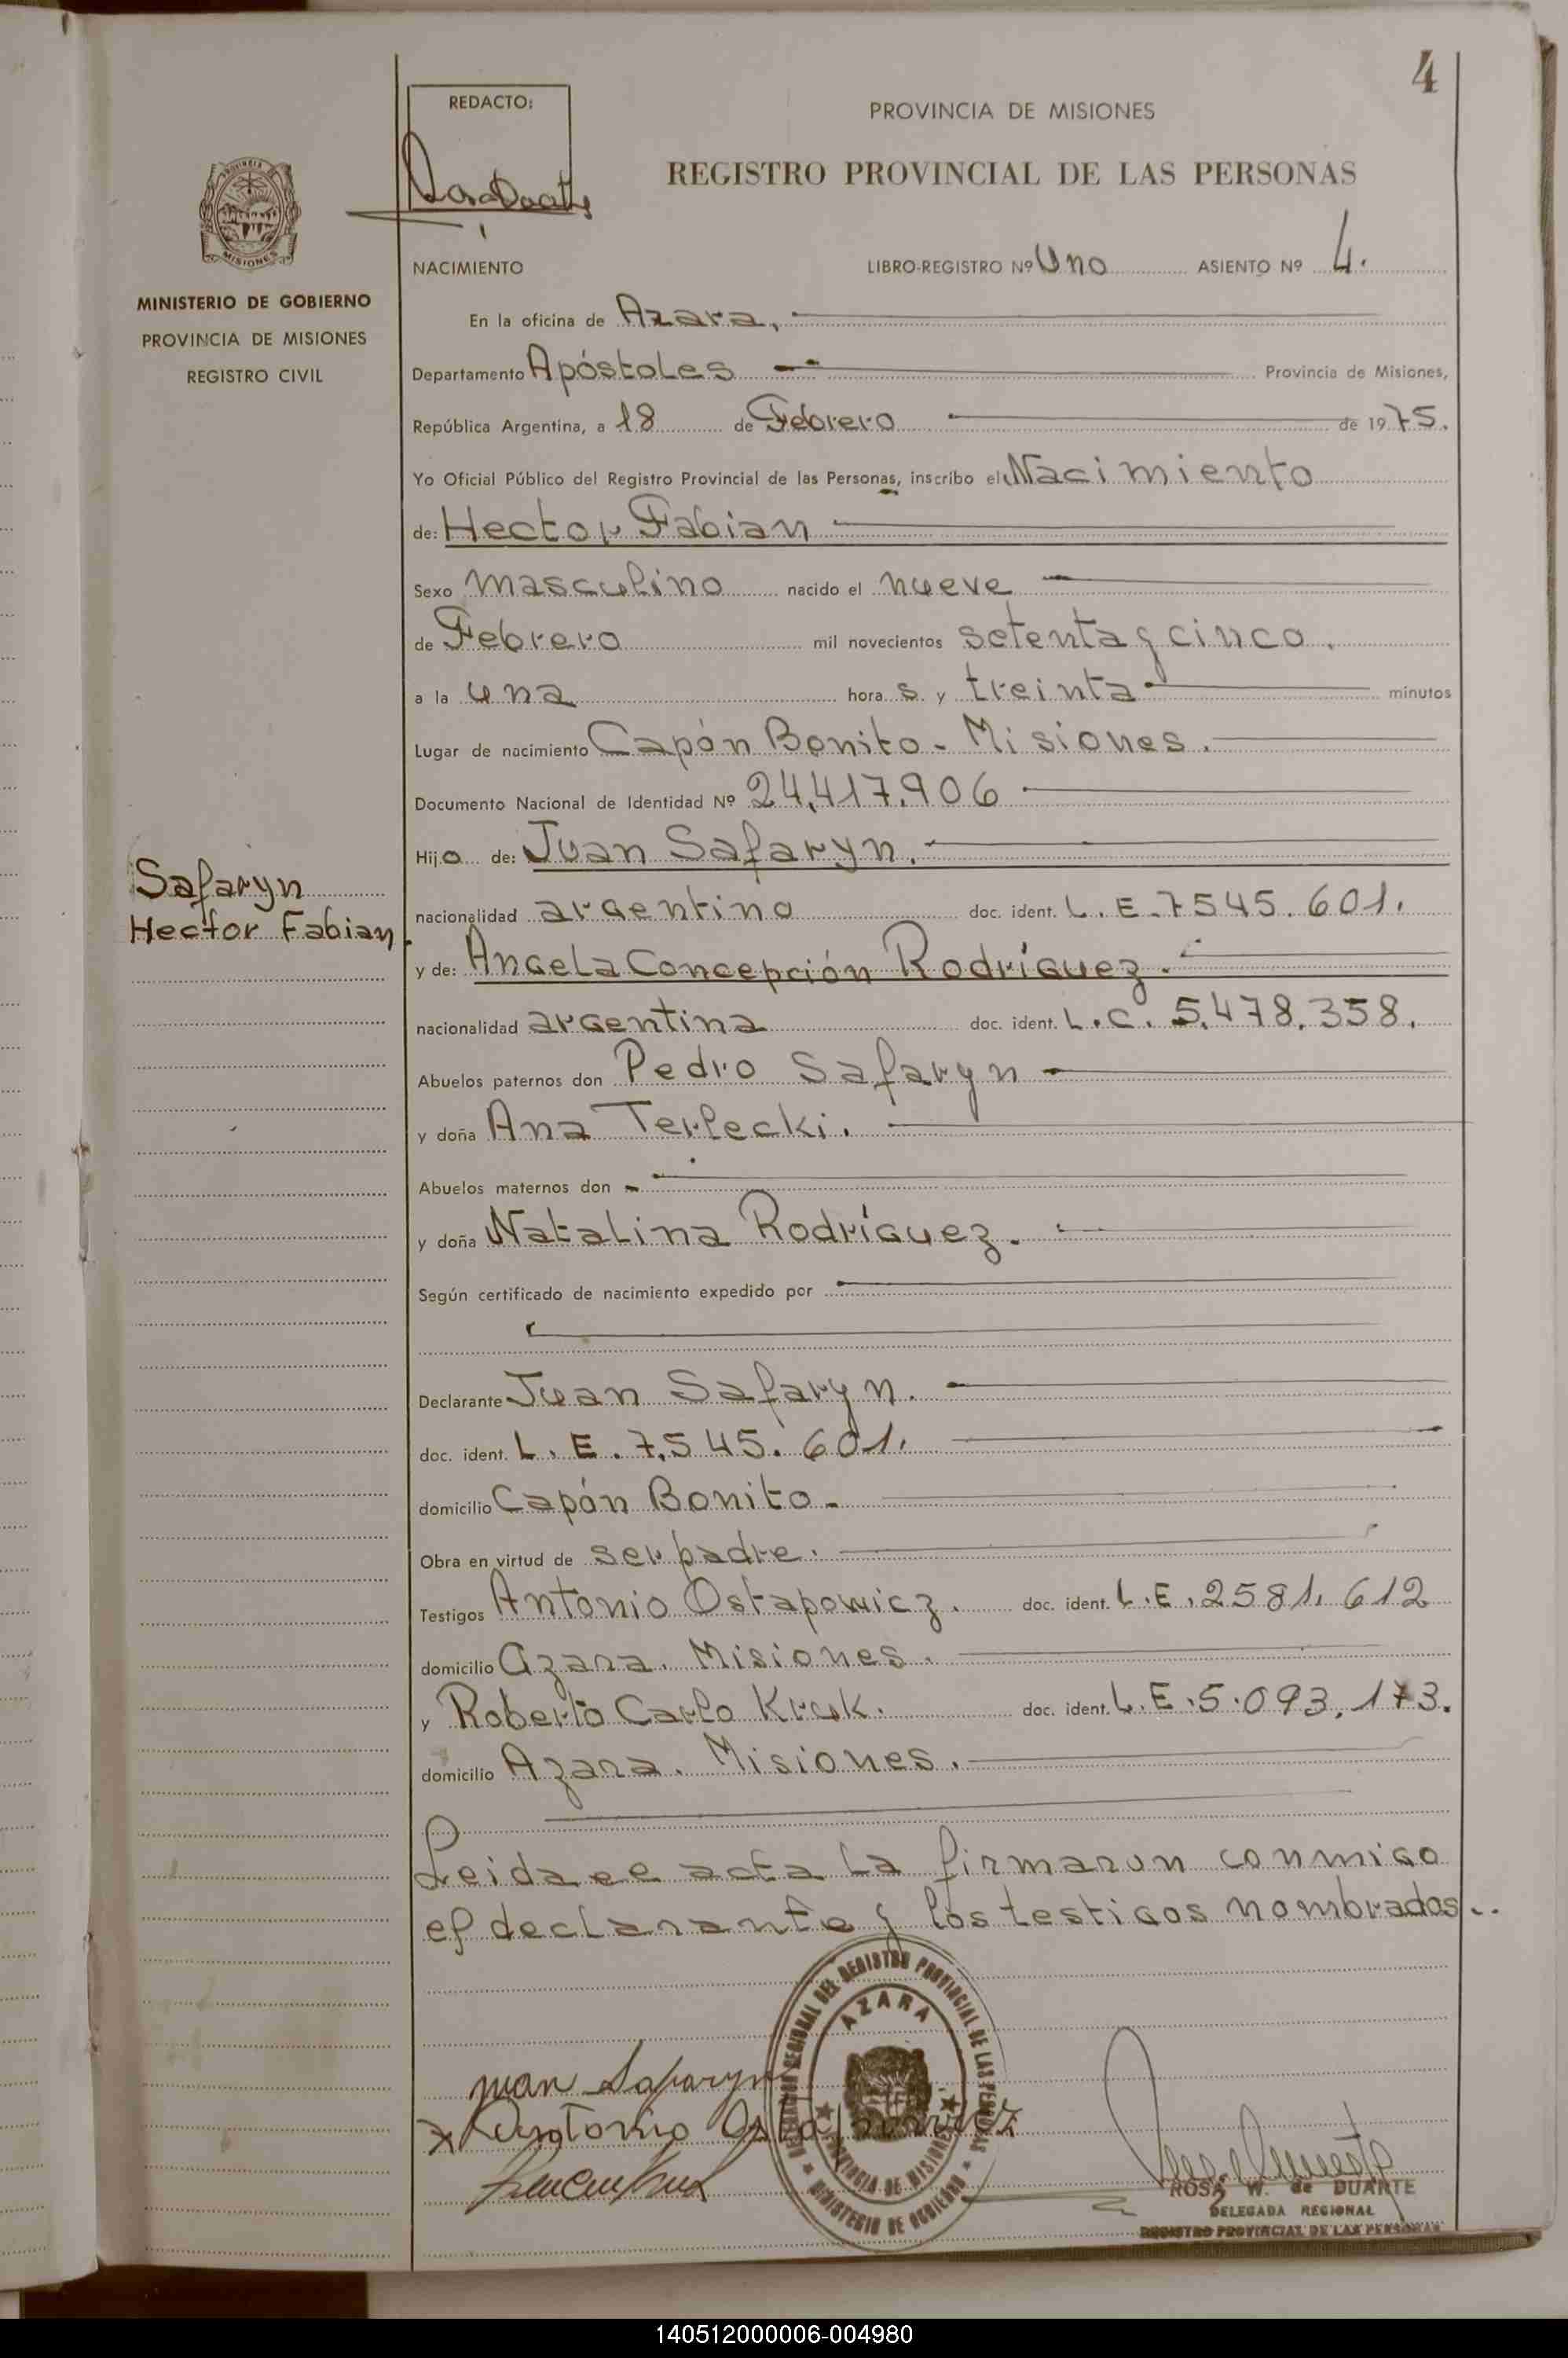 4
REDACTO:
PROVINCIA DE MISIONES
REGISTRO PROVINCIAL DE LAS PERSONAS
MISIONES
MINISTERIO DE GOBIERNO
PROVINCIA DE MISIONES
REGISTRO CIVIL
NACIMIENTO LIBRO-REGISTRO Nº Uno ASIENTO Nº 4.
En la oficina de Azara,
Departamento Apóstoles Provincia de Misiones,
República Argentina, a 18 de Febrero de 1975.
Yo Oficial Público del Registro Provincial de las Personas, inscribo el Nacimiento
de: Hector Fabian
Sexo masculino nacido el nueve
de Febrero mil novecientos setenta y cinco.
a la una hora s y treinta minutos
Lugar de nacimiento Capón Bonito - Misiones.
Documento Nacional de Identidad Nº 24.417.906
Hijo de: Juan Safaryn.
Safaryn
Hector Fabian.
nacionalidad argentino doc. ident. L.E. 7545.601.
y de: Angela Concepción Rodríguez.
nacionalidad argentina doc. ident. L.C. 5.478.358.
Abuelos paternos don Pedro Safaryn
y doña Ana Terlecki.
Abuelos maternos don -
y doña Natalina Rodríguez.
Según certificado de nacimiento expedido por
Declarante Juan Safaryn.
doc. ident. L.E. 7.545.601.
domicilio Capón Bonito -
Obra en virtud de ser padre.
Testigos Antonio Ostapowicz. doc. ident. L.E. 2581.612
domicilio Azara. Misiones.
y Roberto Carlo Kruk. doc. ident. L.E. 5.093.173.
domicilio Azara. Misiones.
Leida el acta la firmaron conmigo
el declarante y los testigos nombrados..
DELEGACION REGIONAL DEL REGISTRO PROVINCIAL DE LAS PERSONAS
AZARA
PROVINCIA DE MISIONES
MINISTERIO DE GOBIERNO
Juan Safaryn
x Antonio Ostapowicz
ROSA W. de DUARTE
DELEGADA REGIONAL
REGISTRO PROVINCIAL DE LAS PERSONAS
140512000006-004980